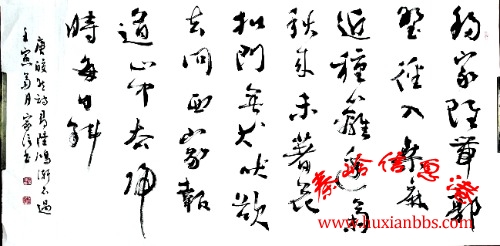 移家雖帶郭
野徑入桑麻
近種籬邊菊
秋來未著花
扣門無犬吠欲
去問西家報
道山中去歸
時每日斜
唐皎然詩尋陸鴻漸不遇
壬寅菊月
www.huxianbbs.com